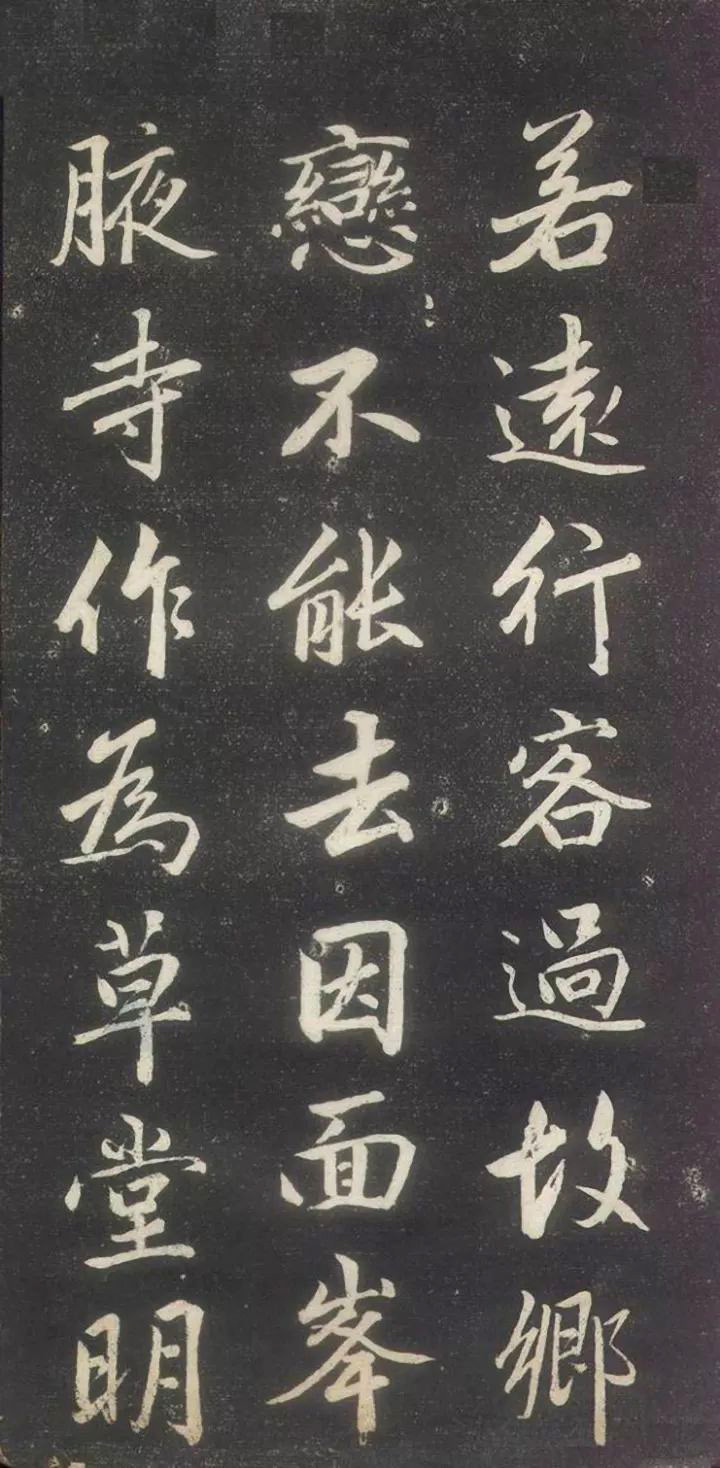 若遠行客過故鄉
戀〻不能去因面峯
腋寺作為草堂明